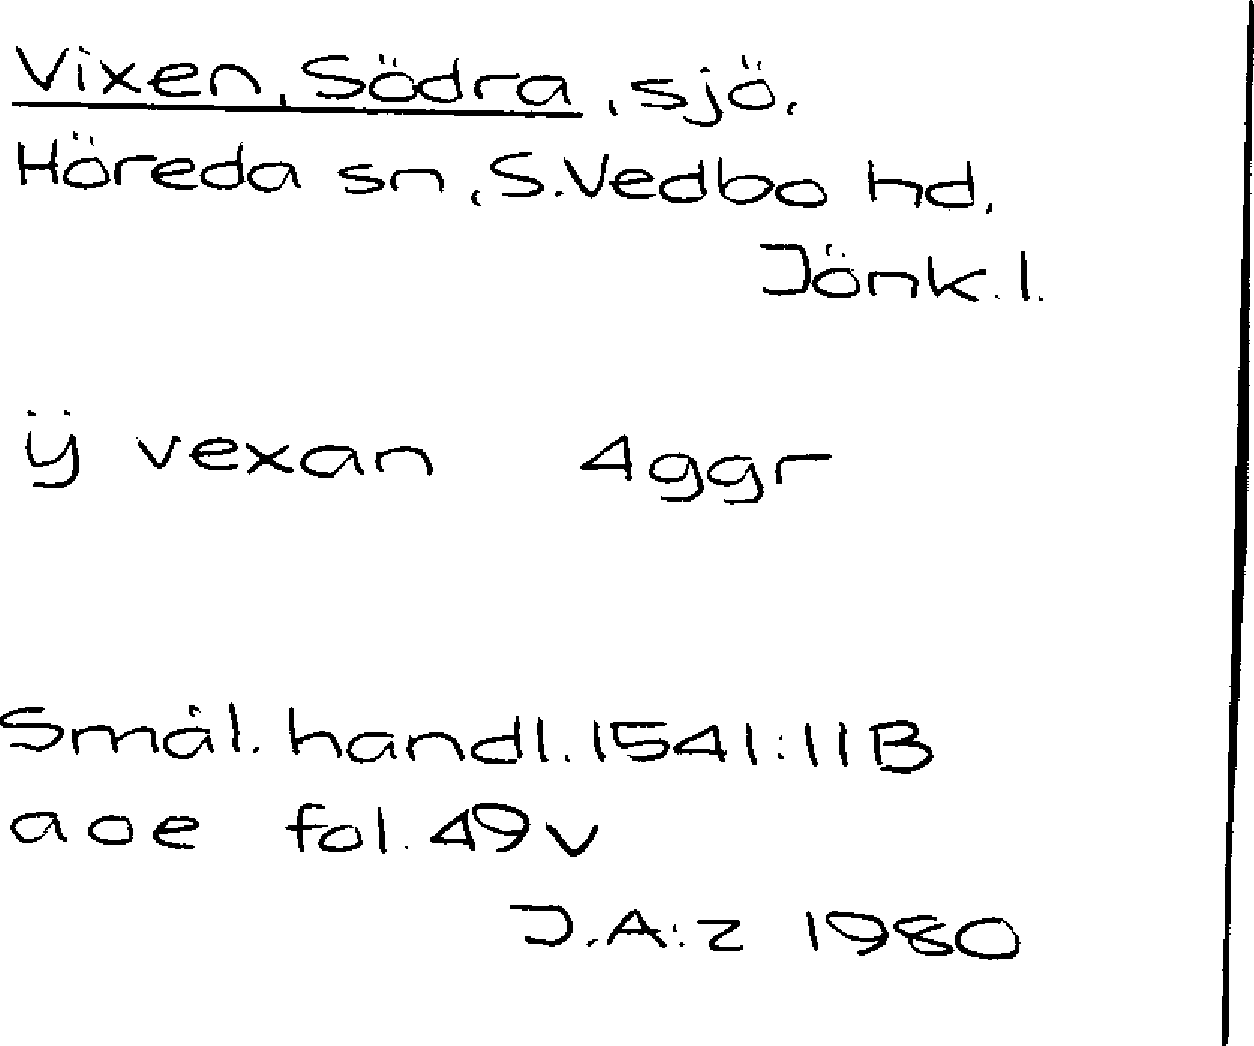 Vixen, Södra, sjö.
Höreda sn, S. Vedbo hd.
Jönk. l.
ÿ vexan 4ggr
Smål. handl. 1541:11B
aoe fol. 49v
J.A:z 1980